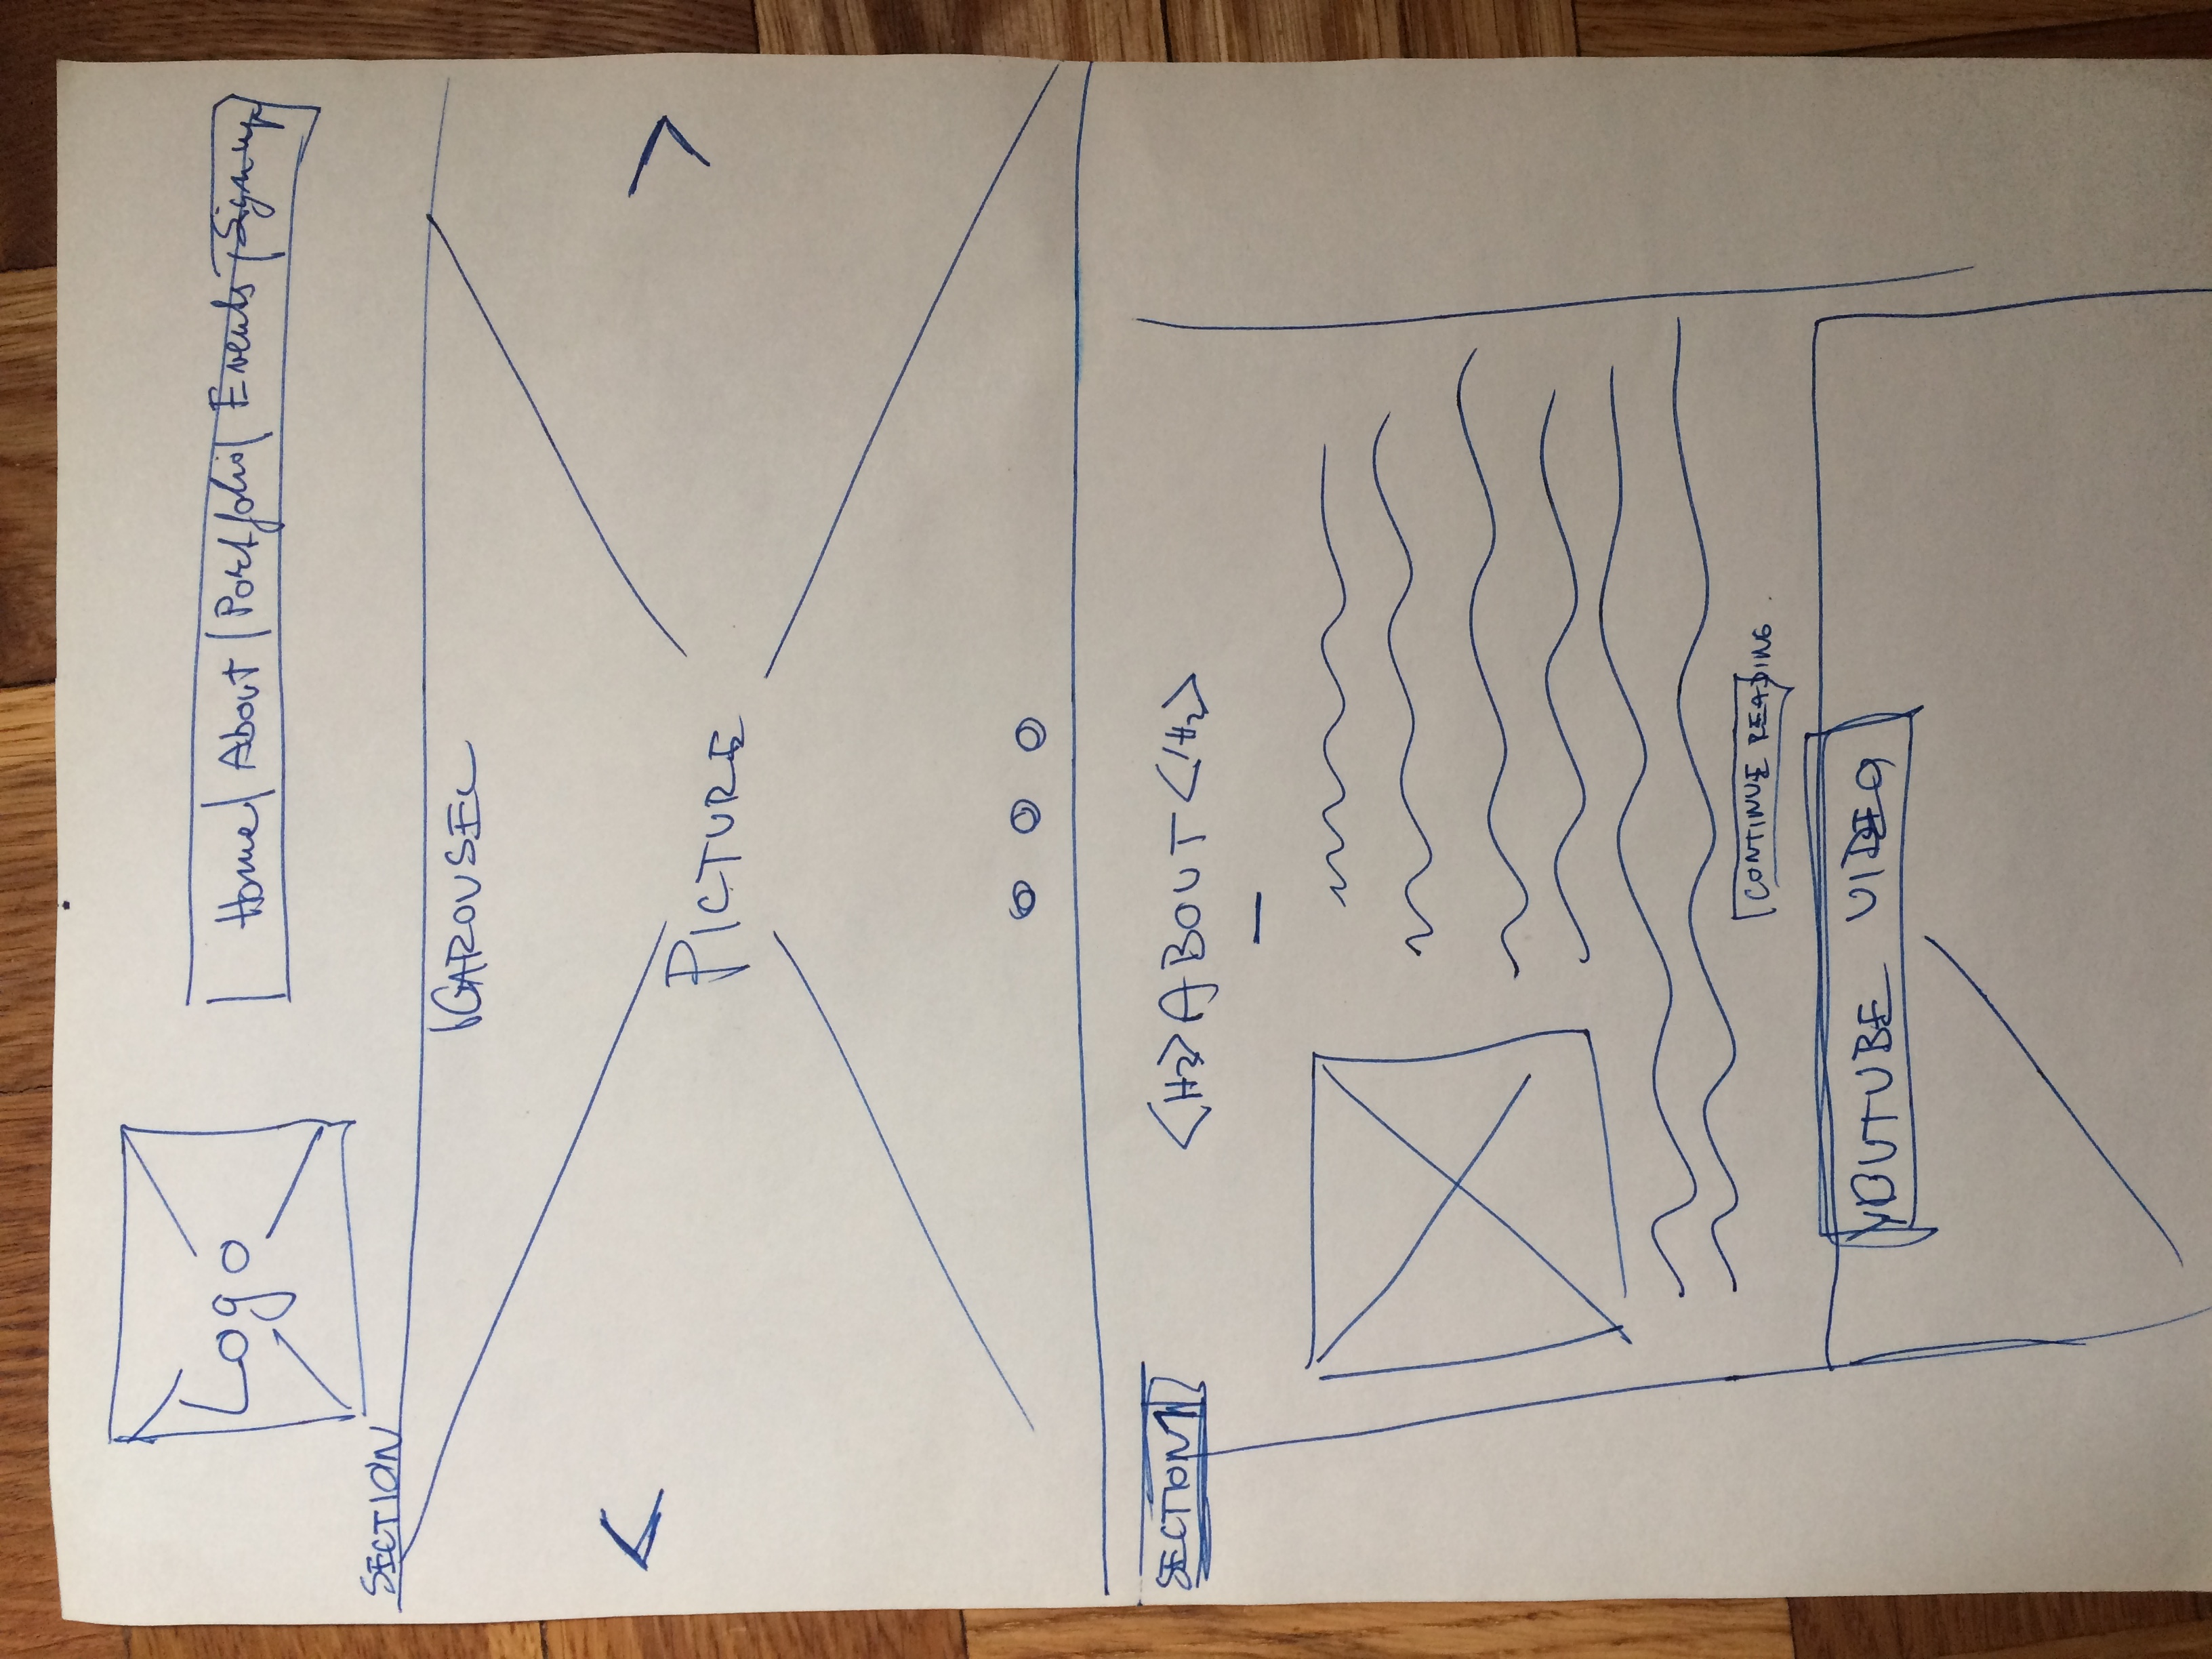 Logo
Home | About | Portfolio | Events | Signup
SECTION
CAROUSEL
<
PICTURE
>
SECTION
<H2> ABOUT </H2>
CONTINUE READING
YOUTUBE VIDEO